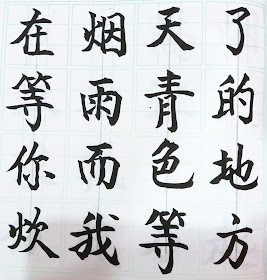 了的地方
天青色等
烟雨而我
在等你炊